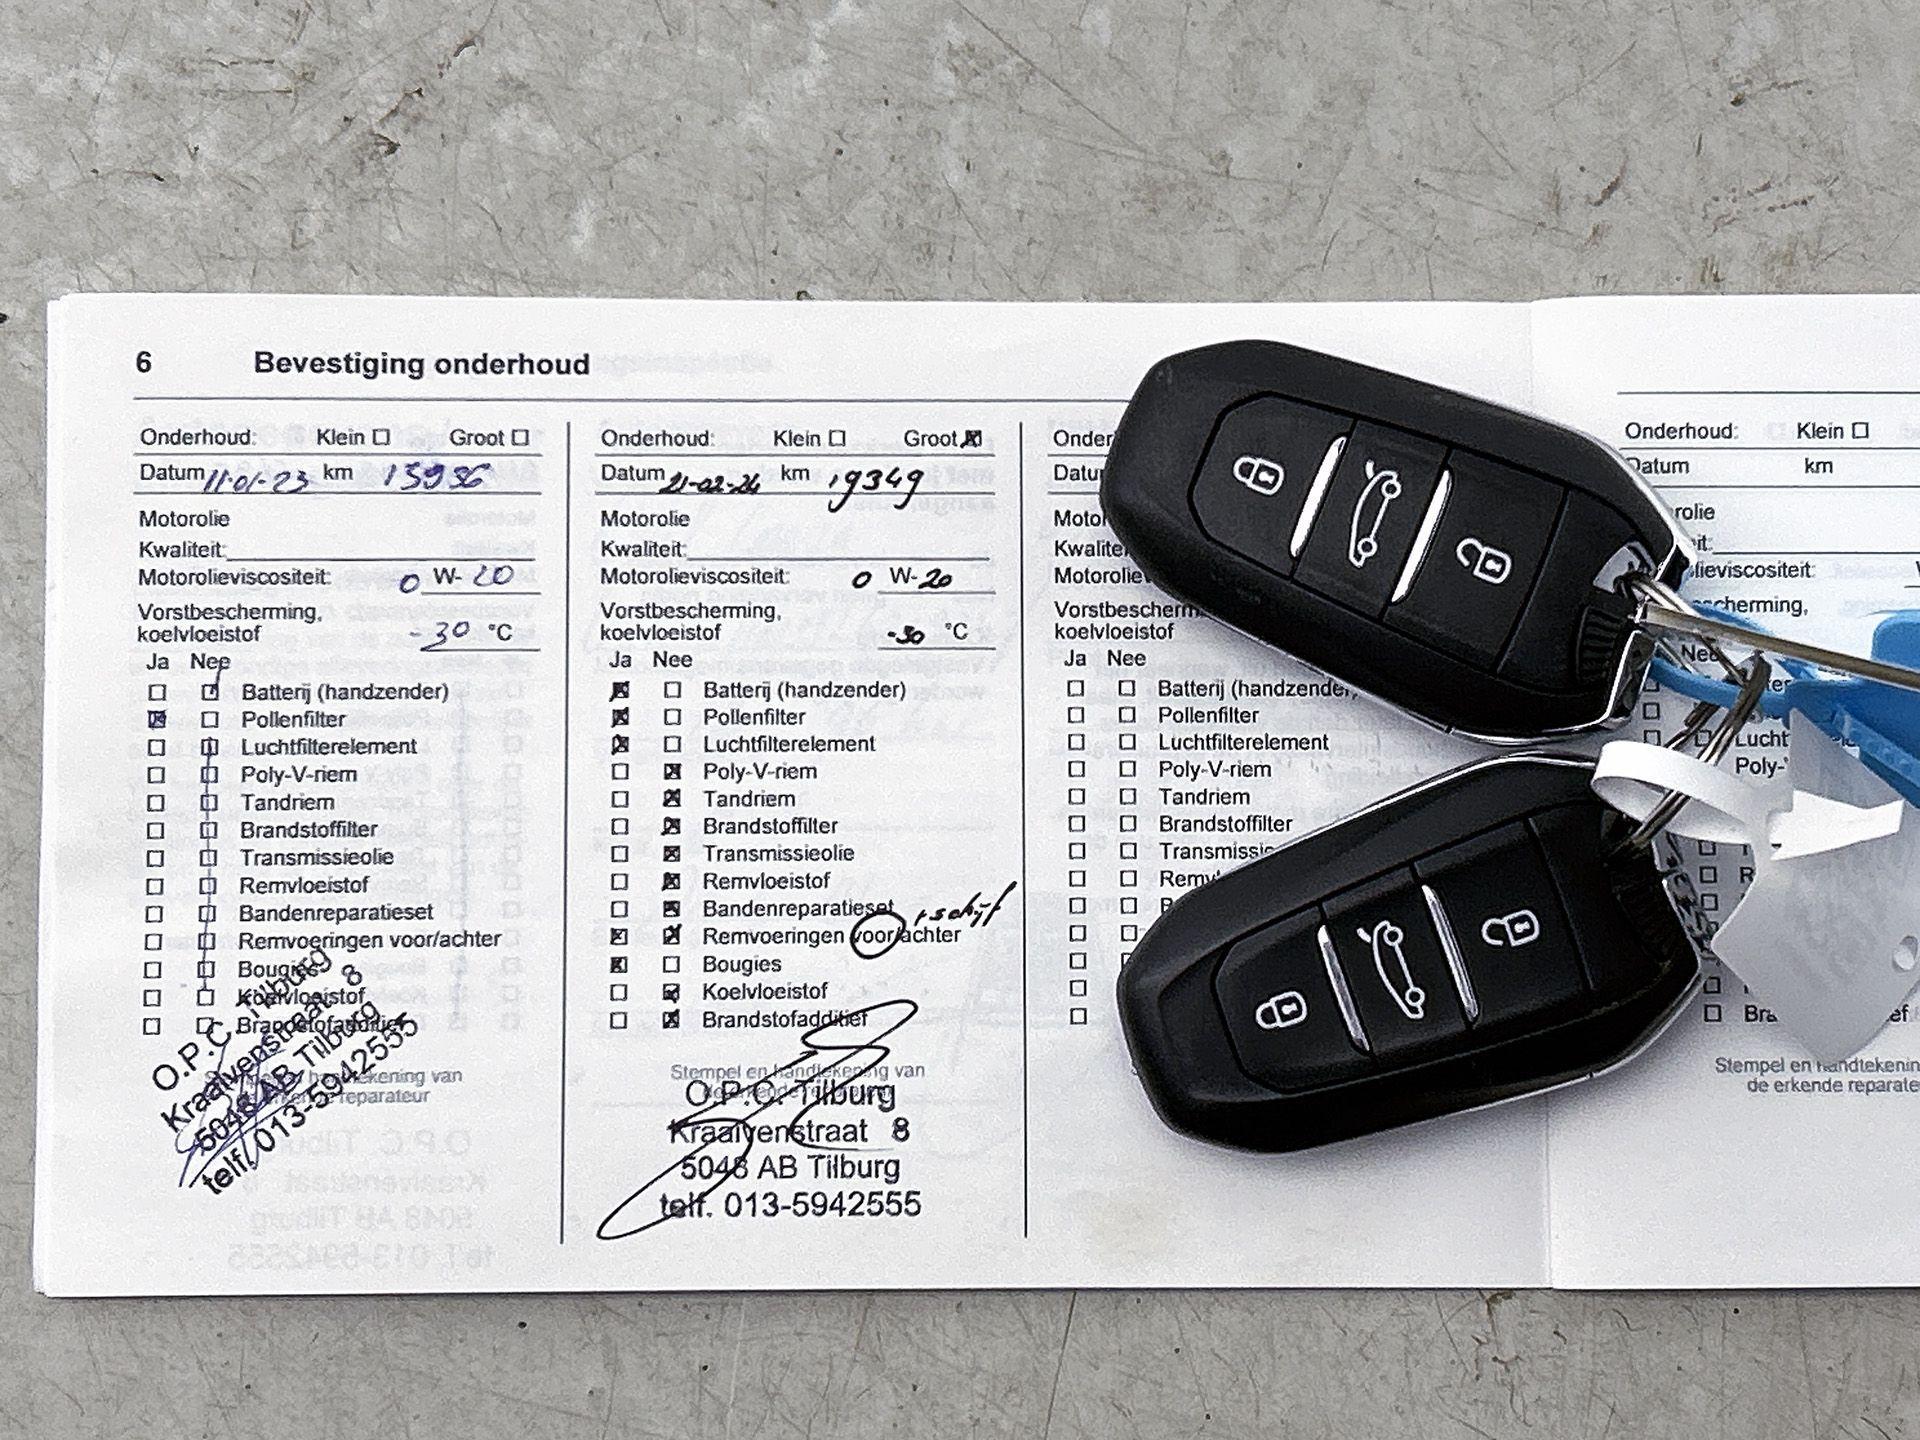 6 Bevestiging onderhoud
Onderhoud: Klein Groot
Datum 11-01-23 km 15936
Motorolie
Kwaliteit:
Motorolieviscositeit: 0 W-20
Vorstbescherming,
koelvloeistof -30 °C
Ja Nee
Batterij (handzender)
Pollenfilter
Luchtfilterelement
Poly-V-riem
Tandriem
Brandstoffilter
Transmissieolie
Remvloeistof
Bandenreparatieset
Remvoeringen voor/achter
Bougies
Koelvloeistof
Brandstofadditief
Stempel en handtekening van
de erkende reparateur
O.P.C. Tilburg
Kraaivenstraat 8
5048 AB Tilburg
telf. 013-5942555
Onderhoud: Klein Groot
Datum 21-02-24 km 19349
Motorolie
Kwaliteit:
Motorolieviscositeit: 0 W-20
Vorstbescherming,
koelvloeistof -30 °C
Ja Nee
Batterij (handzender)
Pollenfilter
Luchtfilterelement
Poly-V-riem
Tandriem
Brandstoffilter
Transmissieolie
Remvloeistof
Bandenreparatieset
Remvoeringen voor/achter + schijf
Bougies
Koelvloeistof
Brandstofadditief
Stempel en handtekening van
de erkende reparateur
O.P.C. Tilburg
Kraaivenstraat 8
5048 AB Tilburg
telf. 013-5942555
Onder
Datu
Motor
Kwalitei
Motorolievi
Vorstbescherm
koelvloeistof
Ja Nee
Batterij (handzender)
Pollenfilter
Luchtfilterelement
Poly-V-riem
Tandriem
Brandstoffilter
Transmissie
Remv
B
Onderhoud: Klein
Datum km
rolie
it:
lieviscositeit:
scherming,
Nee
Lucht
Poly-
R
Bra
Stempel en handtekenin
de erkende reparate